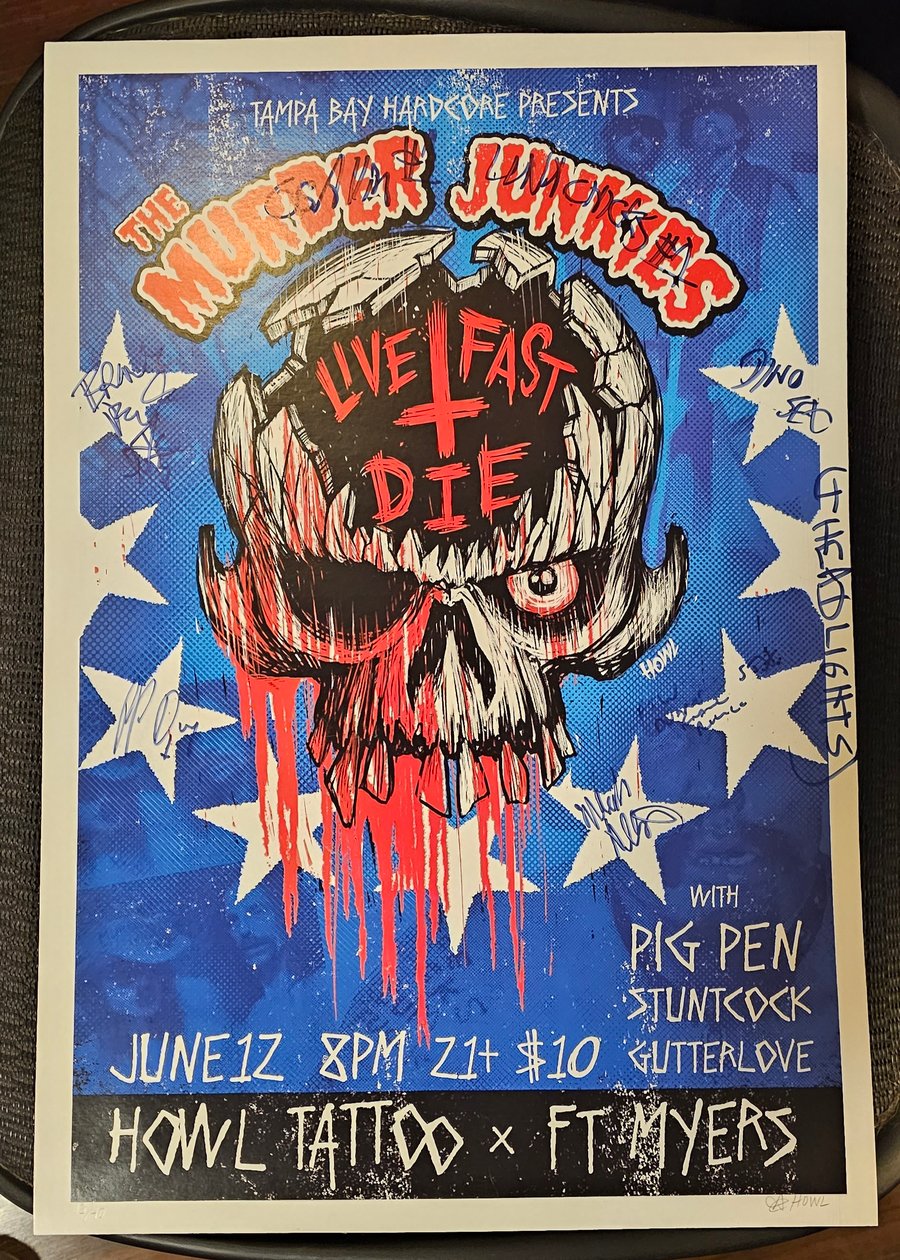 TAMPA BAY HARDCORE PRESENTS
THE
MURDER JUNKIES
LIVE FAST
DIE
DINO
(THEADLIGHTS)
HOWL
WITH
PIG PEN
STUNTCOCK
JUNE 12 8PM 21+ $10 GUTTERLOVE
HOWL TATTOO x FT MYERS
HOWL